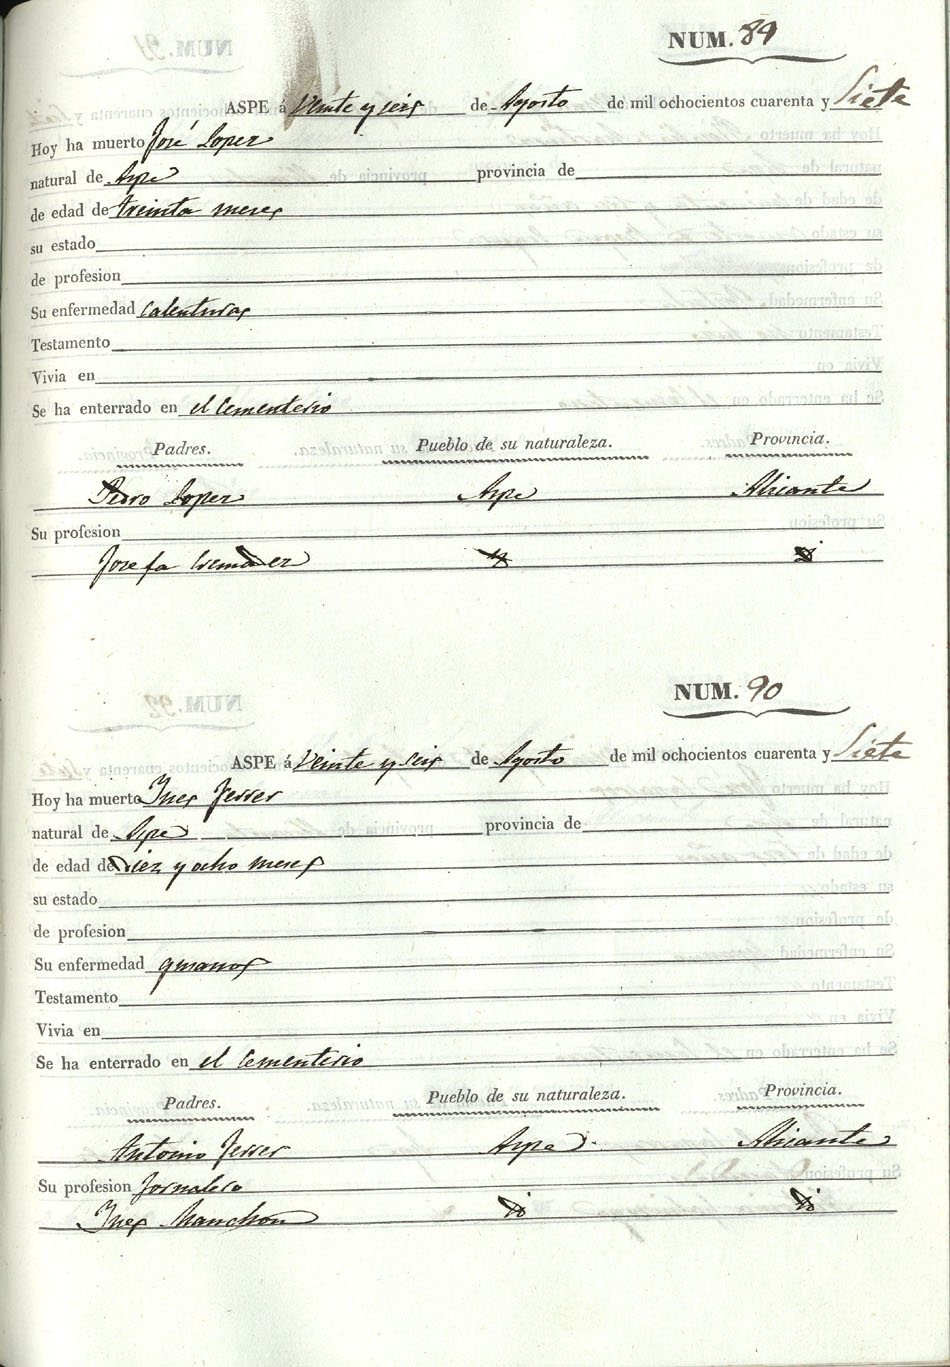 NUM. 89
ASPE á Veinte y seis de Agosto de mil ochocientos cuarenta y Siete
Hoy ha muerto José Lopez
natural de Aspe provincia de
de edad de treinta meses
su estado
de profesion
Su enfermedad Calenturas
Testamento
Vivia en
Se ha enterrado en el Cementerio
Padres. Pueblo de su naturaleza. Provincia.
Pedro Lopez Aspe Alicante
Su profesion
Josefa
NUM. 90
ASPE á Veinte y seis de Agosto de mil ochocientos cuarenta y Siete
Hoy ha muerto Ines Ferrer
natural de Aspe provincia de
de edad de Diez y ocho meses
su estado
de profesion
Su enfermedad
Testamento
Vivia en
Se ha enterrado en el Cementerio
Padres. Pueblo de su naturaleza. Provincia.
Antonio Ferrer Aspe Alicante
Su profesion Jornalero
Ines Manchon